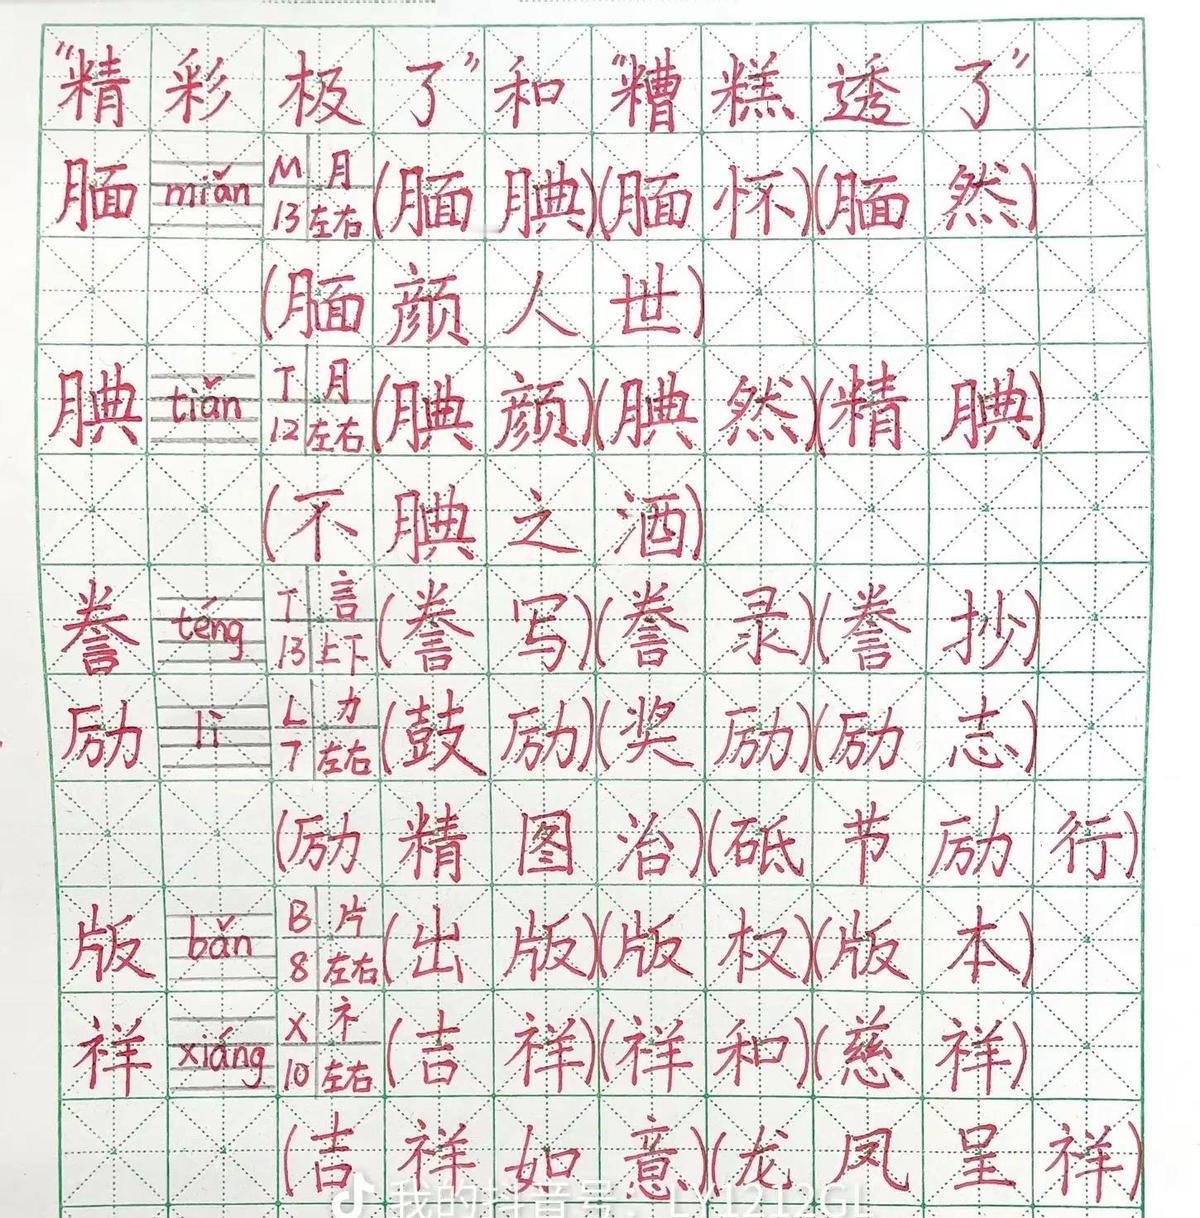 “精彩极了”和“糟糕透了”
腼 miǎn M 月 13 左右 (腼腆)(腼怀)(腼然)
(腼颜人世)
腆 tiǎn T 月 12 左右 (腆颜)(腆然)(精腆)
(不腆之酒)
誊 téng T 言 13 上下 (誊写)(誊录)(誊抄)
励 lì L 力 7 左右 (鼓励)(奖励)(励志)
(励精图治)(砥节励行)
版 bǎn B 片 8 左右 (出版)(版权)(版本)
祥 xiáng X 礻 10 左右 (吉祥)(祥和)(慈祥)
(吉祥如意)(龙凤呈祥)
我的抖音号：LY1212GL